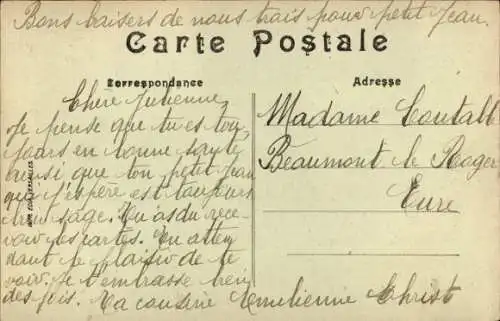 Bons baisers de nous trois pour petit Jean.
Carte Postale
Correspondance
Adresse
Chère Julienne
Je pense que tu es tou
jours en bonne santé
aussi que ton petit Jean
que j'espère est toujours
très sage. Tu as du rece
voir les cartes. En atten
dant le plaisir de te
voir. Je t'embrasse bien
des fois. Ta cousine Emilienne Christ
Madame Coutab
Beaumont le Roger
Eure